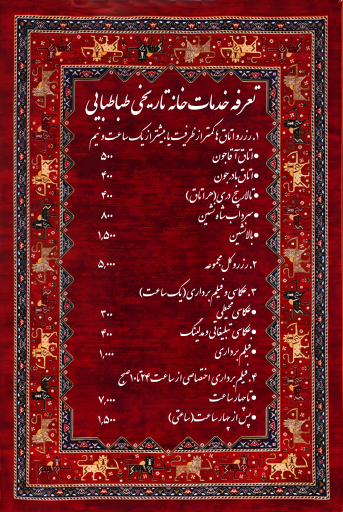 تعرفه خدمات خانه تاریخی طباطبایی
۱. رزرو اتاق ها کمتر از ظرفیت یا بیشتر از یک ساعت و نیم
• اتاق آقاجون ۵۰۰
• اتاق مادرجون ۴۰۰
• تالار پنج دری (هر اتاق) ۴۰۰
• سرداب شاه نشین ۸۰۰
• بالانشین ۱,۵۰۰
۲. رزرو کل مجموعه ۵,۰۰۰
۳. عکاسی و فیلم برداری (یک ساعت)
• عکاسی محیطی ۳۰۰
• عکاسی تبلیغاتی و مدلینگ ۴۰۰
• فیلم برداری ۱,۰۰۰
۴. فیلم برداری اختصاصی از ساعت ۲۴ تا ۱۰ صبح
• تا چهار ساعت ۷,۰۰۰
• پس از چهار ساعت (ساعتی) ۱,۵۰۰